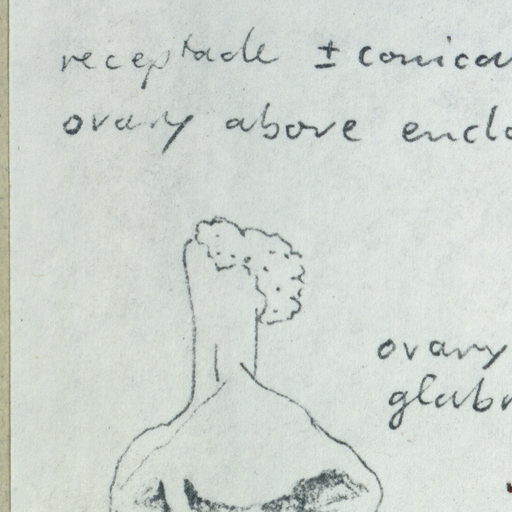 receptacle ± conica
ovary above enclo
ovary
glabr